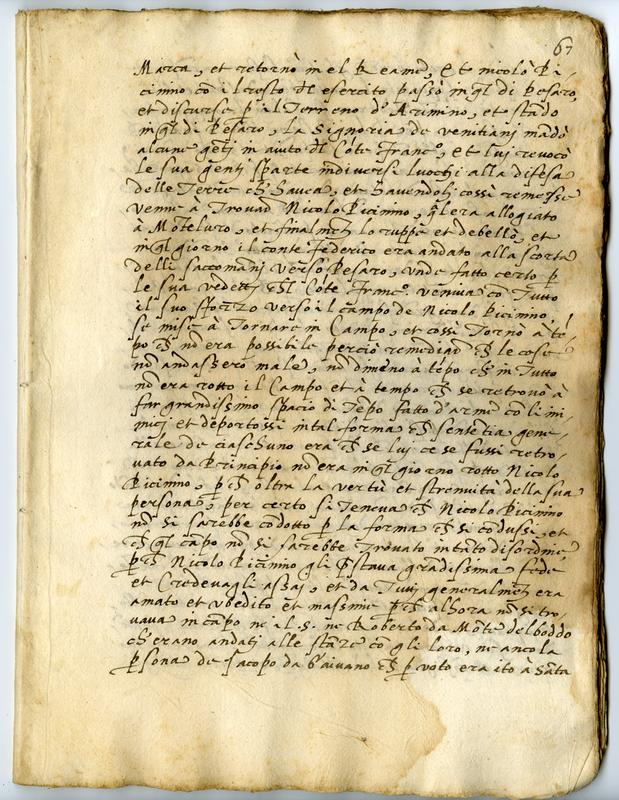 67
Marca, et retornò in el Reame, Et nicolò Pi-
cinino cō il resto dl esercito passò in ql di Pesaro,
et discurse p il Terreno d'Arimino, et stādo
in ql di Pesaro, la Signoria de venitiani mādò
alcune gēti in aiuto dl Cōte Franco, Et lui revocò
le sua genti sparte in diversi luochi alla difesa
delle Terre ch' havea, et havendoli cossì remesse
venne à Trovar Nicolo Picinino, ql era allogiato
à Mōteluro, et finalmēt lo ruppe et debellò, et
in ql giorno il conte Federico era andato alla scorta
delli saccomanj verso Pesaro, unde fatto certo p
le sua vedette chl Cōte Franco. veniva cō Tutto
il suo sforzo verso il campo de Nicolo Picinino,
se mise à Tornare in Campo, et cossì Tornò à tē-
po ch nō era possibile perciò remediar ch le cose
nō andassero male, nō dimeno à tēpo ch in Tutto
nō era rotto il Campo et à tempo ch se retrovò à
far grandissimo spacio di Tēpo fatto d'arme cō li ini-
micj et deportossi in tal forma ch sentētia gene-
rale de ciaschuno era ch se lui ce se fussi retro-
vato da Principio nō era in ql giorno rotto Nicolo
Picinino, pch oltra la vertù et strenuità della sua
persona, per certo si Teneva ch Nicolo Picinino
nō si sarebbe cōdotto p la forma ch si cōdussi, et
ch ql cāpo nō si sarebbe Trovato in tāto disordine
pch Nicolo Picinino gli pstava grādissima fede
et Credevagli assaj, et da Tutj generalmēt era
amato et ubedito et massime pch alhora nō si tro-
vava in cāpo ne il .S. ne Roberto da Mōte delboddo
ch'erano andati alle stāze cō gli loro, ne ancola
psona de Jacopo da Gaivano ch p voto era ito à Sāta